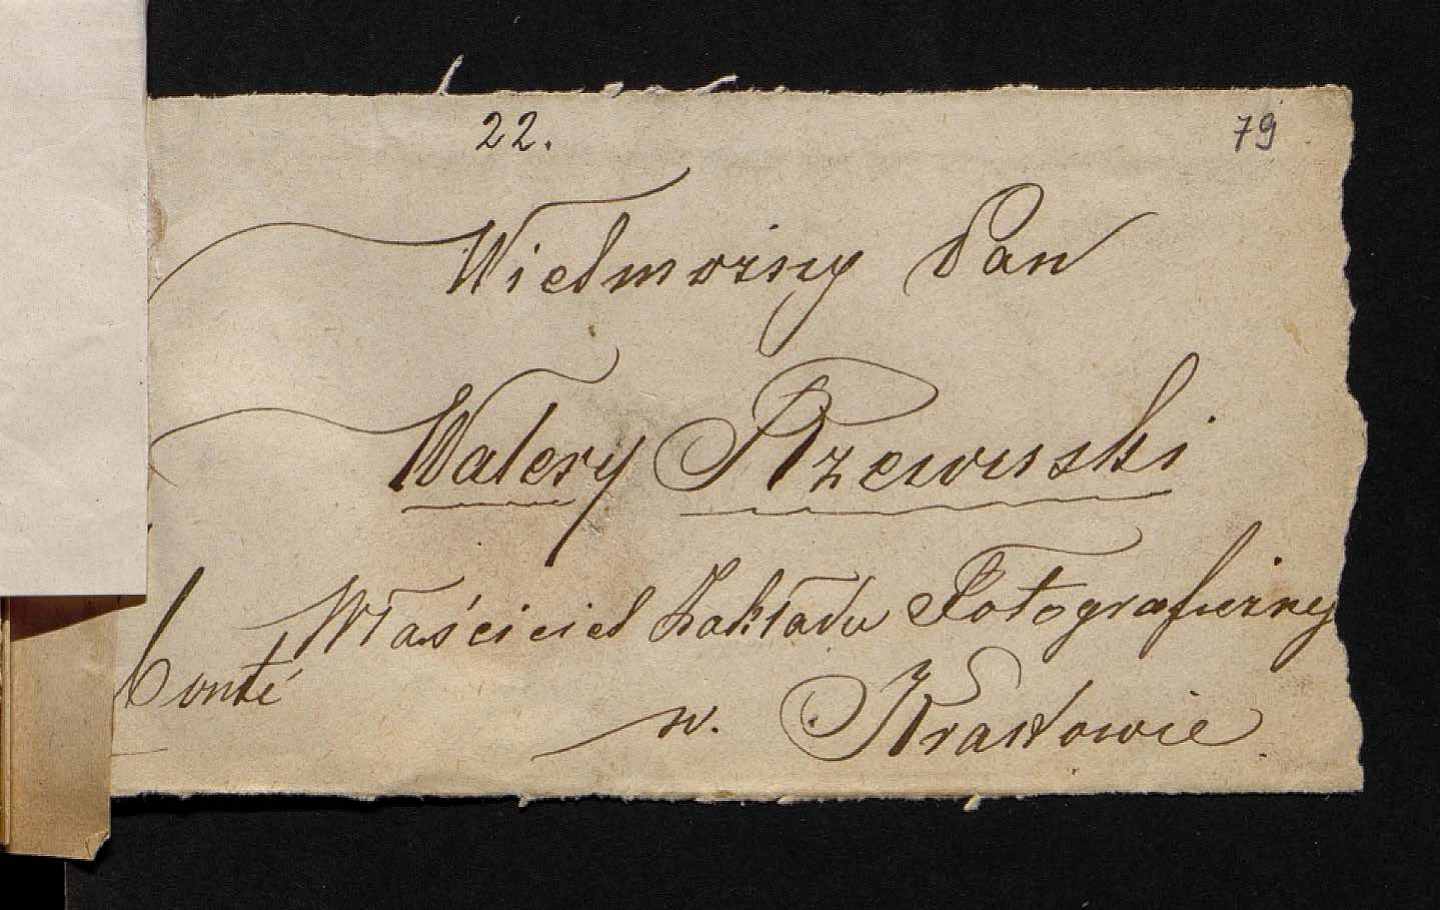 22.
79
Wielmożny Pan
Walery Rzewuski
Właściciel Zakładu Fotograficzny
Conté
w. Krakowie